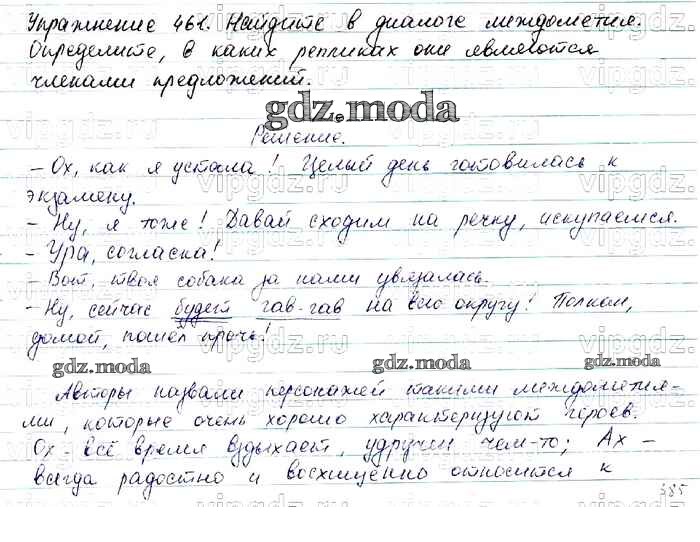 Упражнение 461. Найдите в диалоге междометия.
Определите, в каких репликах они являются
членами предложений.
gdz.moda
Решение.
– Ох, как я устала! Целый день готовилась к
экзамену.
– Ну, я тоже! Давай сходим на речку, искупаемся.
– Ура, согласна!
– Вот, твоя собака за нами увязалась.
– Ну, сейчас будет гав-гав на всю округу! Полкан,
домой, пошёл прочь!
gdz.moda gdz.moda gdz.moda
Авторы назвали персонажей такими междометия-
ми, которые очень хорошо характеризуют героев.
Ох – всё время вздыхает, удручён чем-то; Ах –
всегда радостно и восхищенно относится к
385